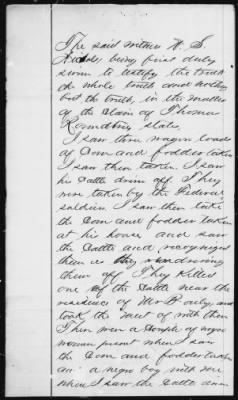 The said witness W. S.
being first duly
sworn to testify the truth
the whole truth and nothing
but the truth, in the matter
of the Claim of Thomas
Roundtree states
I saw three wagon loads
of Corn and fodder taken
I saw them taken I saw
his Cattle driven off They
were taken by the Federal
soldiers I saw them take
the Corn and fodder taken
at his house and saw
the Cattle and recognized
them as they driving
them off They killed
one of the Cattle near the
residence of Mr Baily and
took the meat of with them
There were a couple of negro
women present when I saw
the Corn and fodder taken
a negro boy with me
when I saw the Cattle